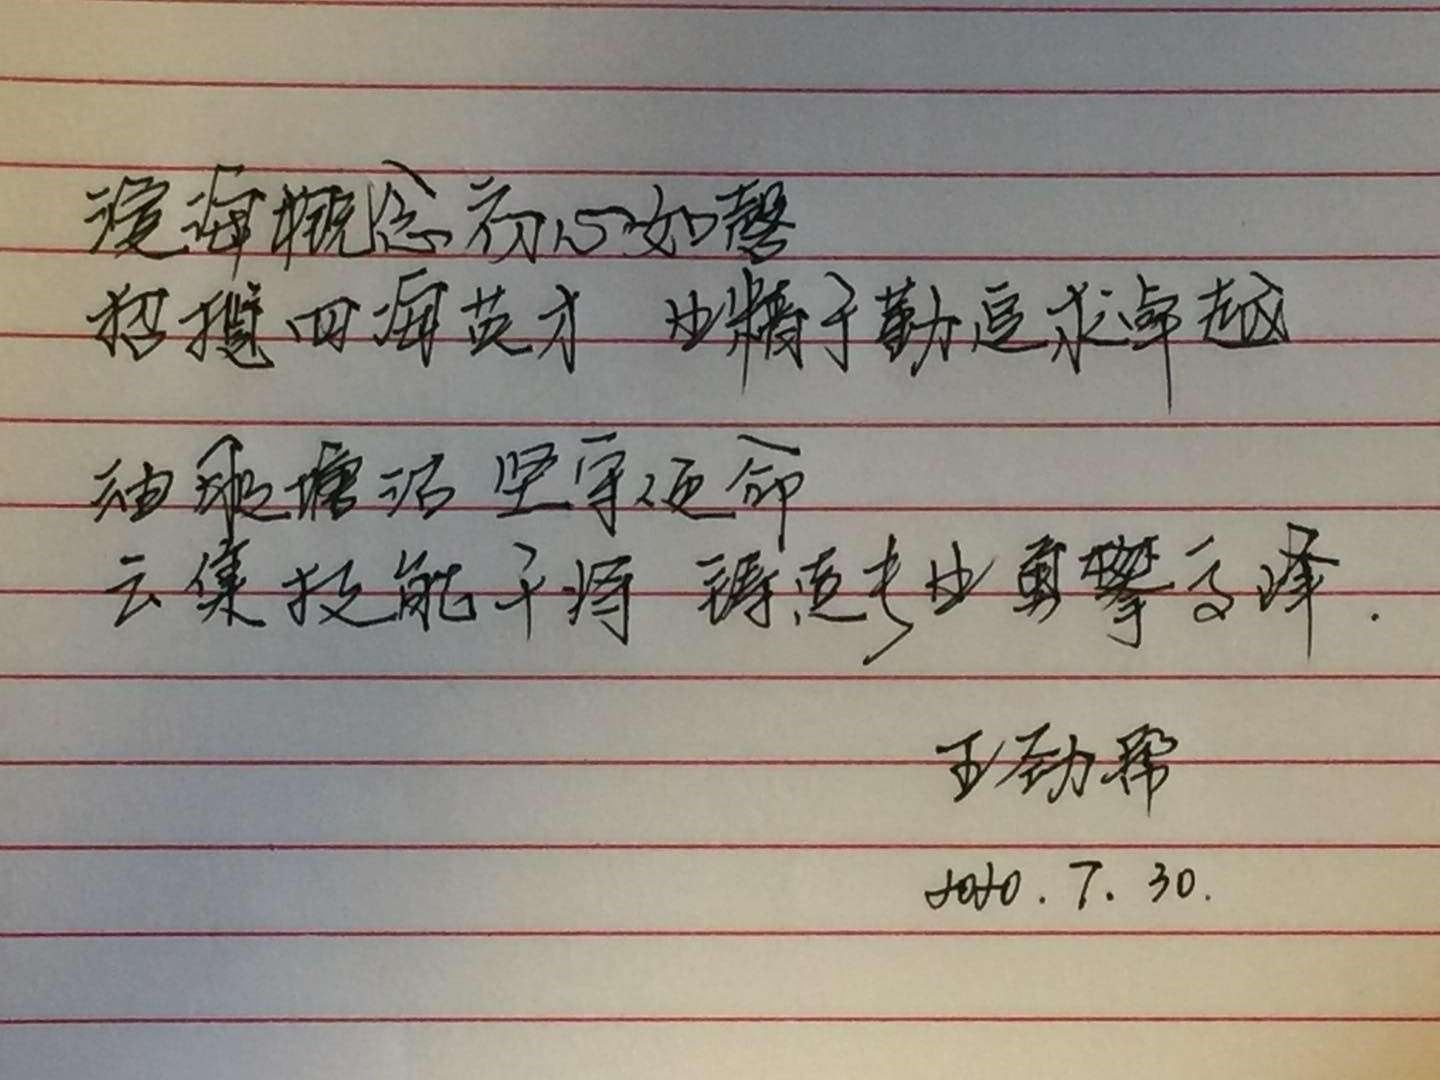 海概念初心如磬
招揽四海英才 业精于勤追求卓越
油 塘沽 坚守使命
云集技能干将 铸造专业勇攀高峰.
王劲
2020.7.30.